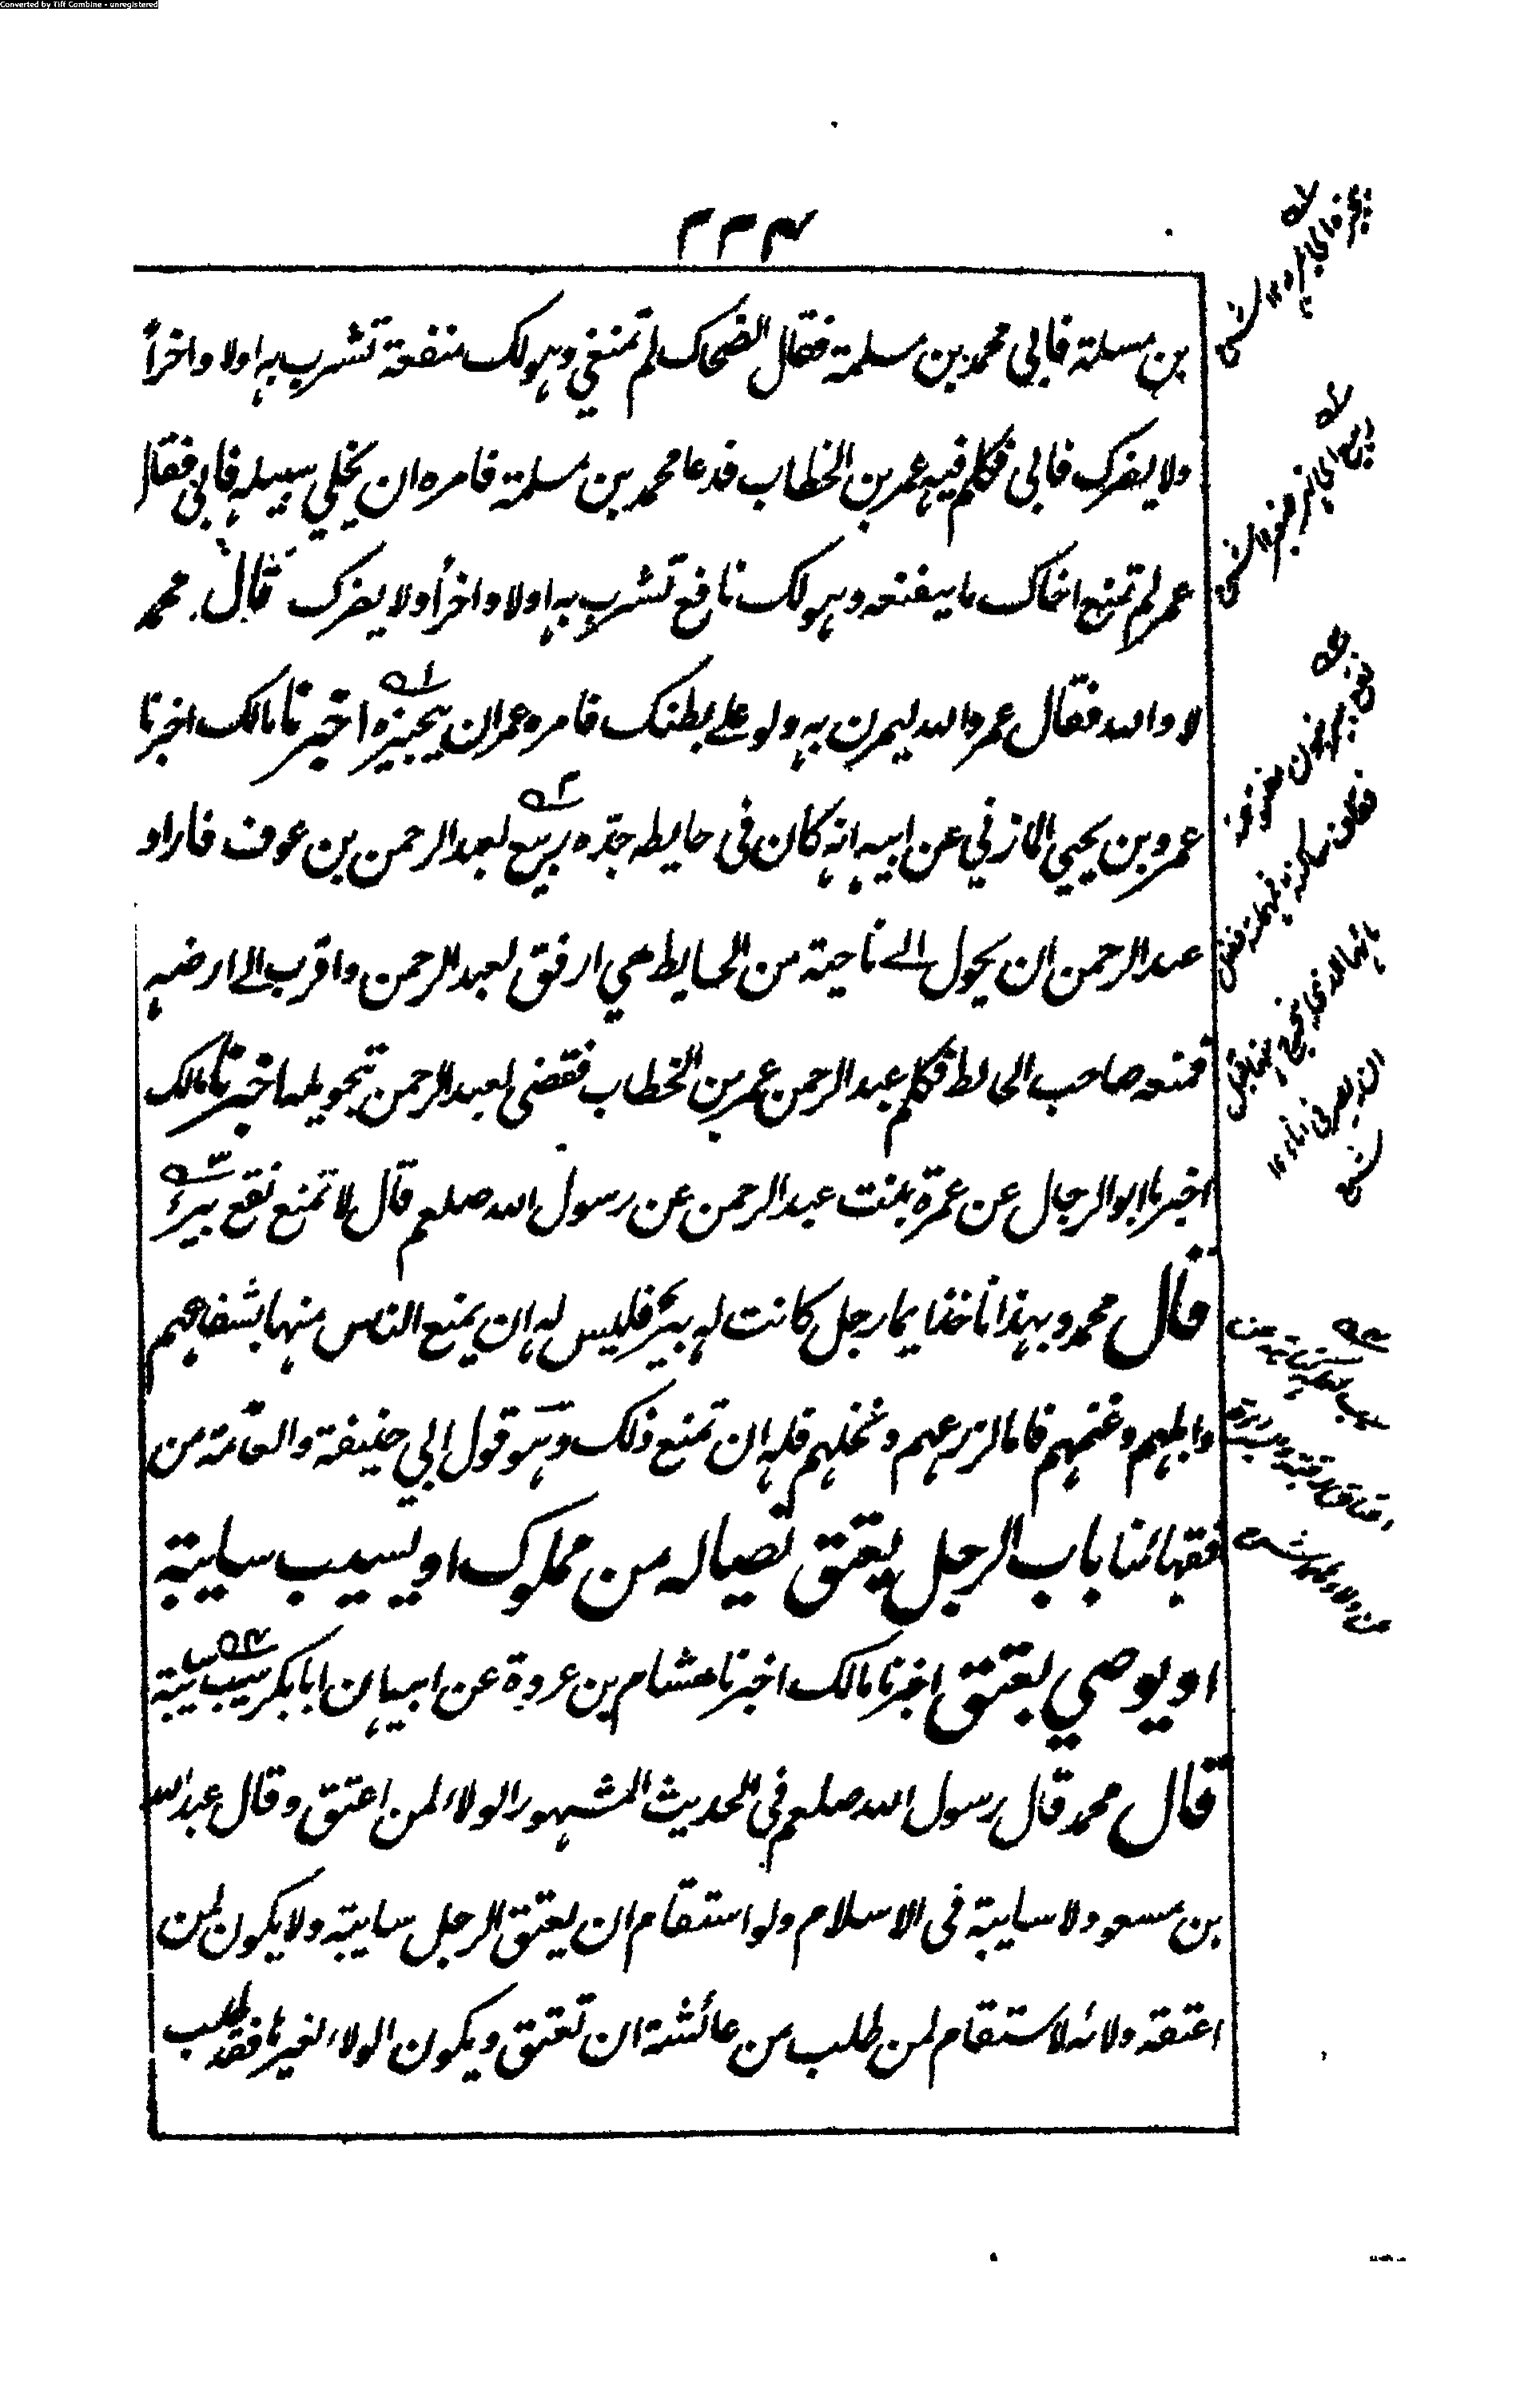 Converted by Tiff Combine - unregistered
٣٣٤
بن مسلمة فابى محمد بن سلمة فقال الضحاك لم تمنعني وهو لك منفعة تشرب به اولا واخراً
ولا يضرك فابى فكلم فيه عمر بن الخطاب فدعا محمد بن مسلمة فامره ان يخلي سبيله فابى فقال
عمر لم تمنع اخاك ما ينفعه وهو لك نافع تشرب به اولا واخراً ولا يضرك قال محمد
لا والله فقال عمر والله ليمرن به ولو على بطنك فامره عمر ان يجيزه اخبرنا مالك اخبرنا
عمرو بن يحيي المازني عن ابيه انه كان في حايط جدّه ربيع لعبد الرحمن بن عوف فاراد
عبد الرحمن ان يحول الى ناحية من الحايط هي ارفق لعبد الرحمن واقرب الى ارضه
فمنعه صاحب الحائط فكلم عبد الرحمن عمر بن الخطاب فقضى لعبد الرحمن بتحويله اخبرنا مالك
اخبرنا ابو الرجال عن عمرة بنت عبد الرحمن عن رسول الله صلعم قال لا تمنع نقع بير
قال محمد وبهذا ناخذ ايما رجل كانت له بير فليس له ان يمنع الناس منها بشفاههم
وابلهم وغنمهم فاما لزرعهم ونخلهم فله ان تمنع ذلك وهو قول ابي حنيفة والعامة من
فقهائنا باب الرجل يعتق نصيبا له من مملوك او يسيب سايبة
او يوصي بعتق اخبرنا مالك اخبرنا هشام بن عروة عن ابيه ان ابا بكر سيب سايبة
قال محمد قال رسول الله صلعم في الحديث المشهور الولاء لمن اعتق وقال عبد الله
بن مسعود لا سايبة في الاسلام ولو استقام ان يعتق الرجل سايبة ولا يكون لمن
اعتقه ولائه لاستقام لمن طلب من عائشة ان تعتق ويكون الولاء لغيرها فقد طلب